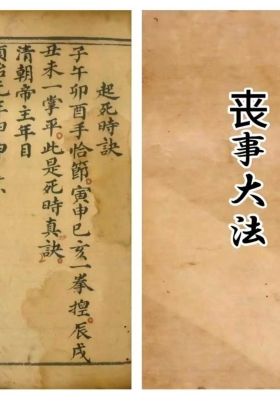 起死時訣
子午卯酉手恰節寅申巳亥一拳揑辰戌
丑未一掌平此是死時真訣
清朝帝主年目
順治元年
丧事大法